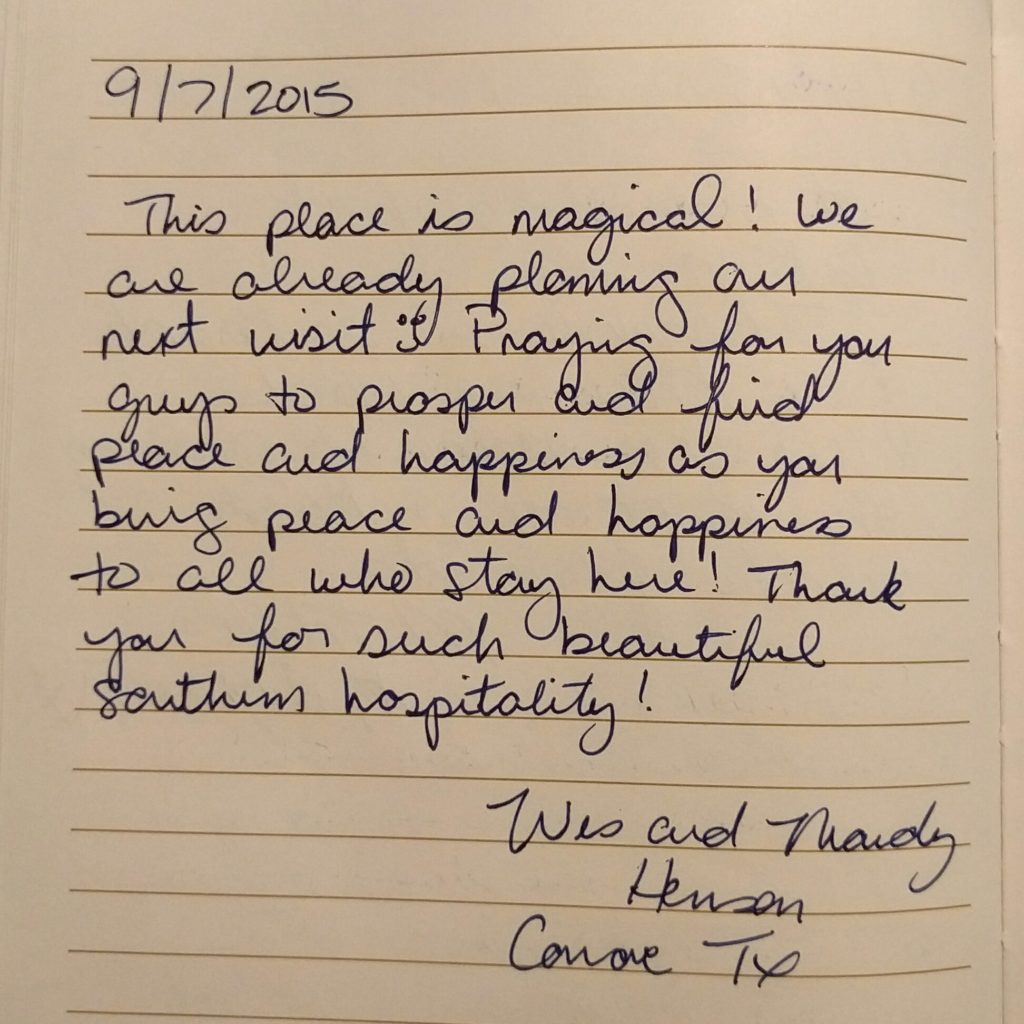 9/7/2015
This place is magical! We
are already planning our
next visit Praying for you
guys to prosper and find
peace and happiness as you
bring peace and happiness
to all who stay here! Thank
you for such beautiful
southern hospitality!
Wes and Mandy
Henson
Conroe Tx